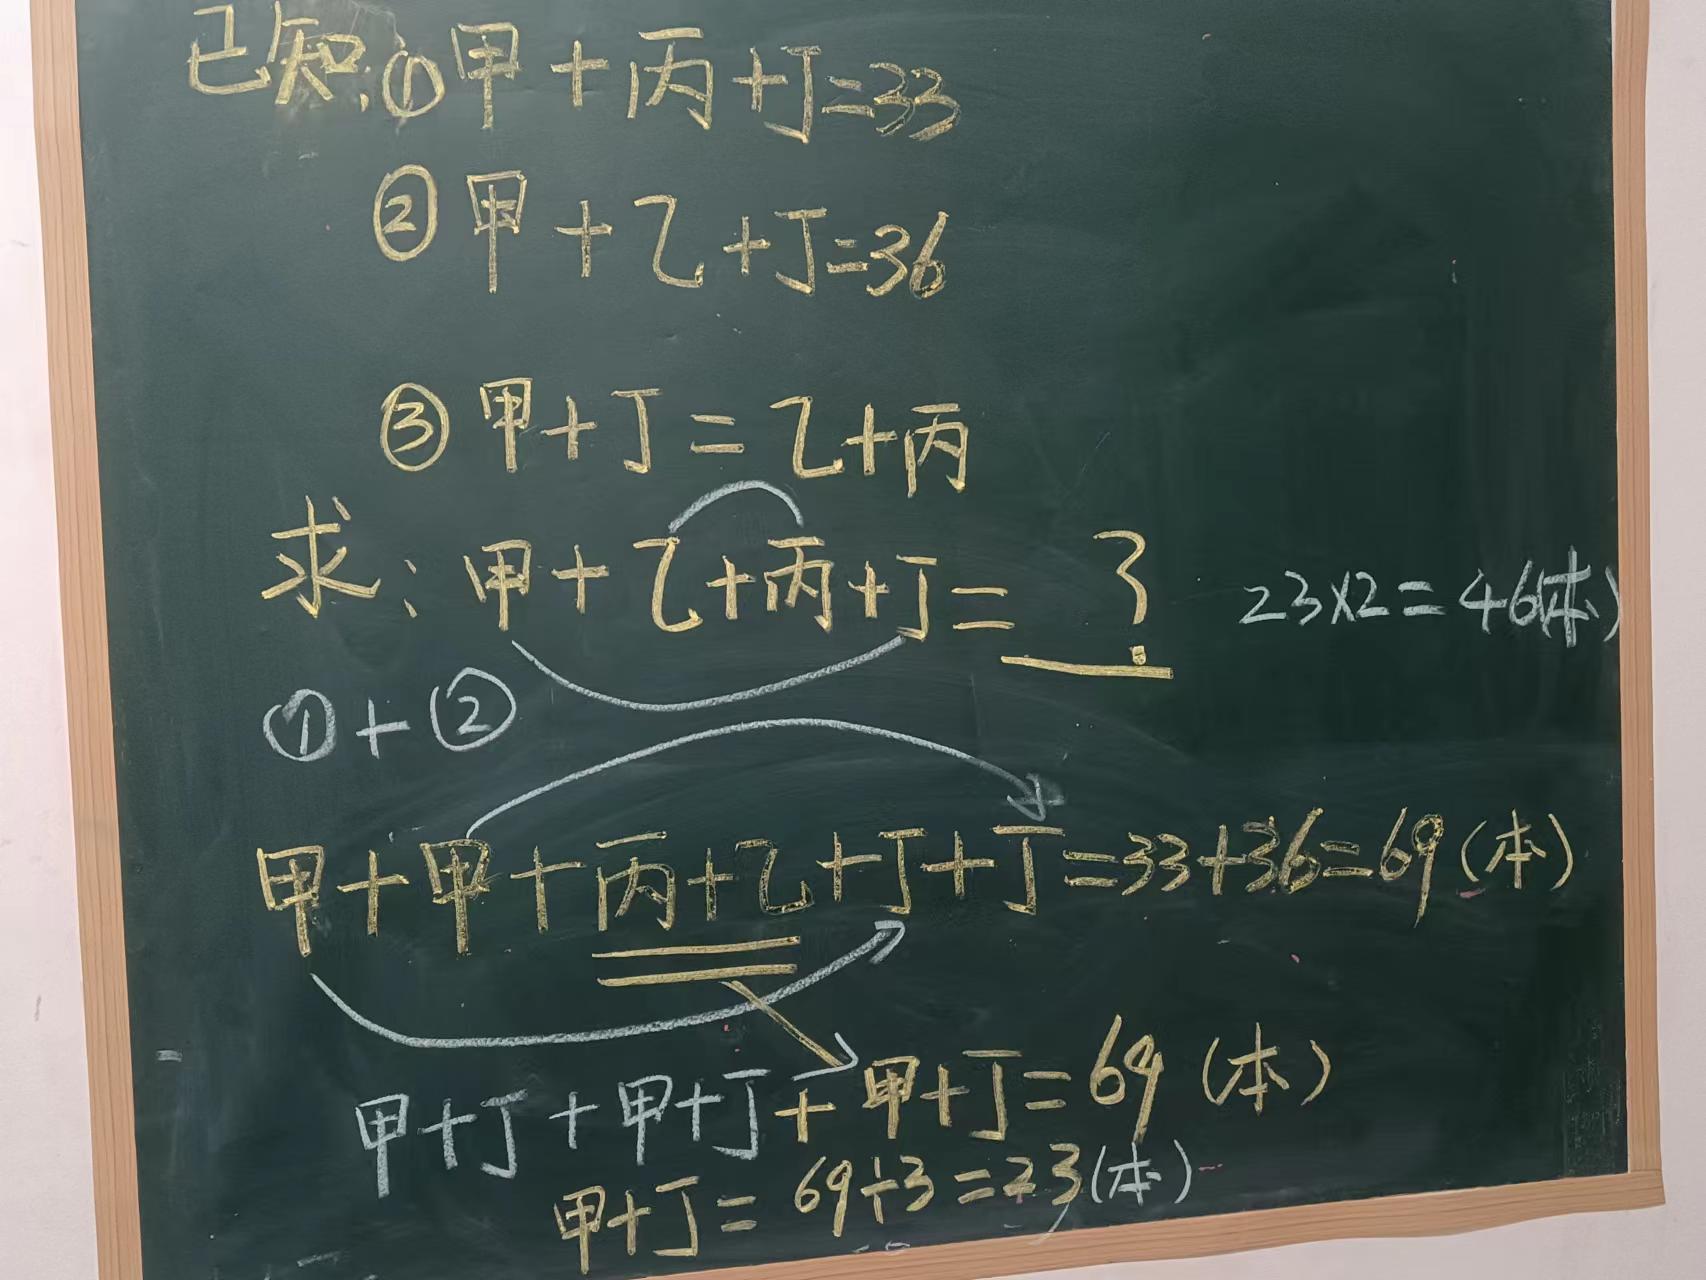 已知:①甲+丙+丁=33
②甲+乙+丁=36
③甲+丁=乙+丙
求:甲+乙+丙+丁=?
23×2=46(本)
①+②
甲+甲+丙+乙+丁+丁=33+36=69(本)
甲+丁+甲+丁+甲+丁=69(本)
甲+丁=69÷3=23(本)